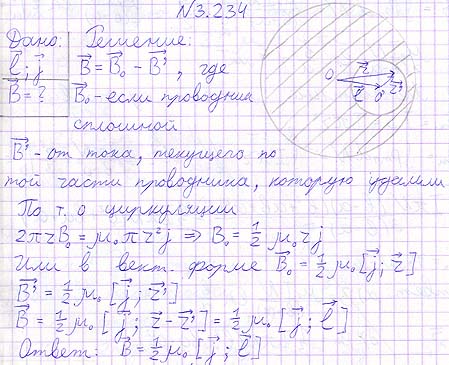 №3.234
Дано: Решение:
l⃗; j⃗ B⃗ = B⃗₀ - B⃗', где
B⃗ = ? B⃗₀ - если проводник
сплошной
B⃗' - от тока, текущего по
той части проводника, которую удалили
По т. о циркуляции
2πrB₀ = μ₀πr²j ⇒ B₀ = 1/2 μ₀rj
Или в вект. форме B⃗₀ = 1/2 μ₀[j⃗; r⃗]
B⃗' = 1/2 μ₀[j⃗; r⃗']
B⃗ = 1/2 μ₀[j⃗; r⃗ - r⃗'] = 1/2 μ₀[j⃗; l⃗]
Ответ: B⃗ = 1/2 μ₀[j⃗; l⃗]
O r⃗ r⃗' l⃗ O'